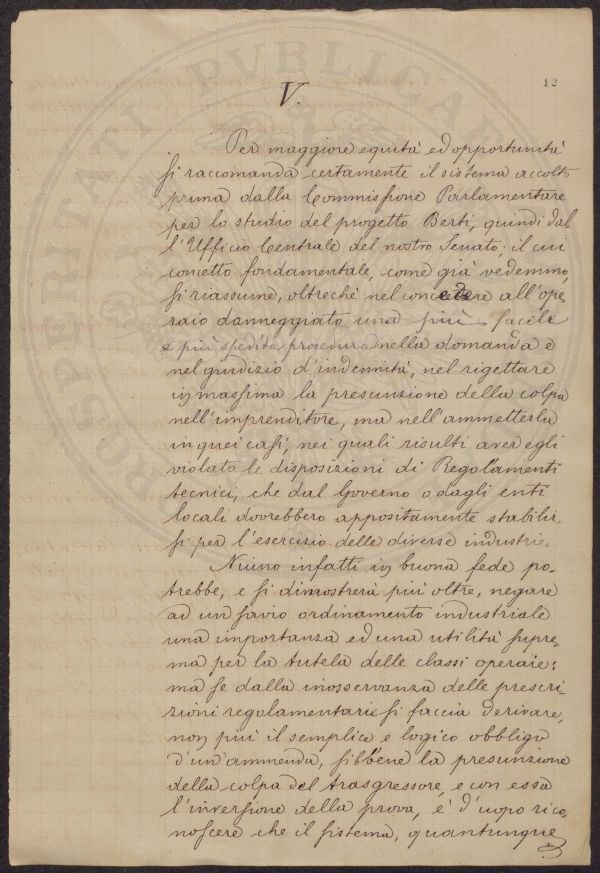 PROSPERITATI PVBLICAE
12
V.
Per maggiore equità ed opportunità
si raccomanda certamente il sistema accolto
prima dalla Commissione Parlamentare
per lo studio del progetto Berti, quindi dal
l'Ufficio Centrale del nostro Senato; il cui
concetto fondamentale, come già vedemmo,
si riassume, oltreché nel concedere all'ope
raio danneggiato una più facile
e più spedita procedura nella domanda e
nel giudizio d'indennità, nel rigettare
in massima la presunzione della colpa
nell'imprenditore, ma nell'ammetterla
in quei casi, nei quali risulti aver egli
violato le disposizioni di Regolamenti
tecnici, che dal Governo o dagli enti
locali dovrebbero appositamente stabilir-
si per l'esercizio delle diverse industrie.
Niuno infatti in buona fede po-
trebbe, e si dimostrerà più oltre, negare
ad un savio ordinamento industriale
una importanza ed una utilità supre-
ma per la tutela delle classi operaie;
ma se dalla inosservanza delle prescri-
zioni regolamentarie si faccia derivare,
non più il semplice e logico obbligo
d'un'ammenda, sibbene la presunzione
della colpa del trasgressore, e con essa
l'inversione della prova, è d'uopo rico-
noscere che il sistema, quantunque